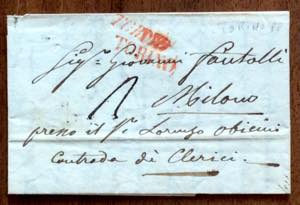 TORINO
TORINO
Sigr. Giovanni Fantelli
Milano
presso il Sr. Lorenzo Obicini
Contrada di Clerici.